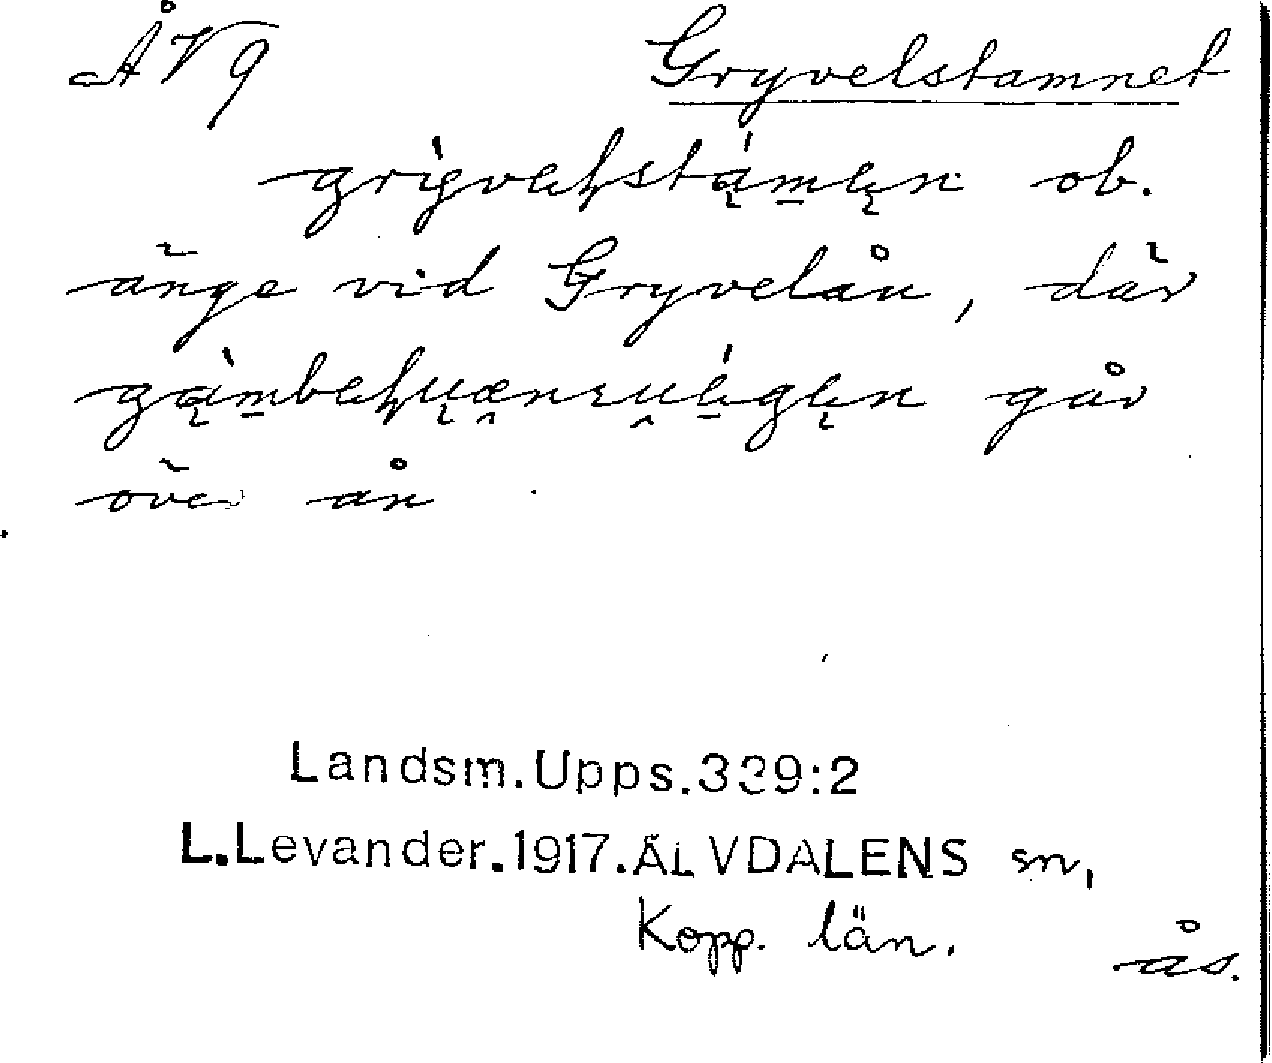 ÅV9 Gryvelstamnet
ob.
änge vid Gryvelån, där
går
över ån
Landsm.Upps.339:2
L.Levander.1917.ÄLVDALENS sn,
Kopp. län.
ås.